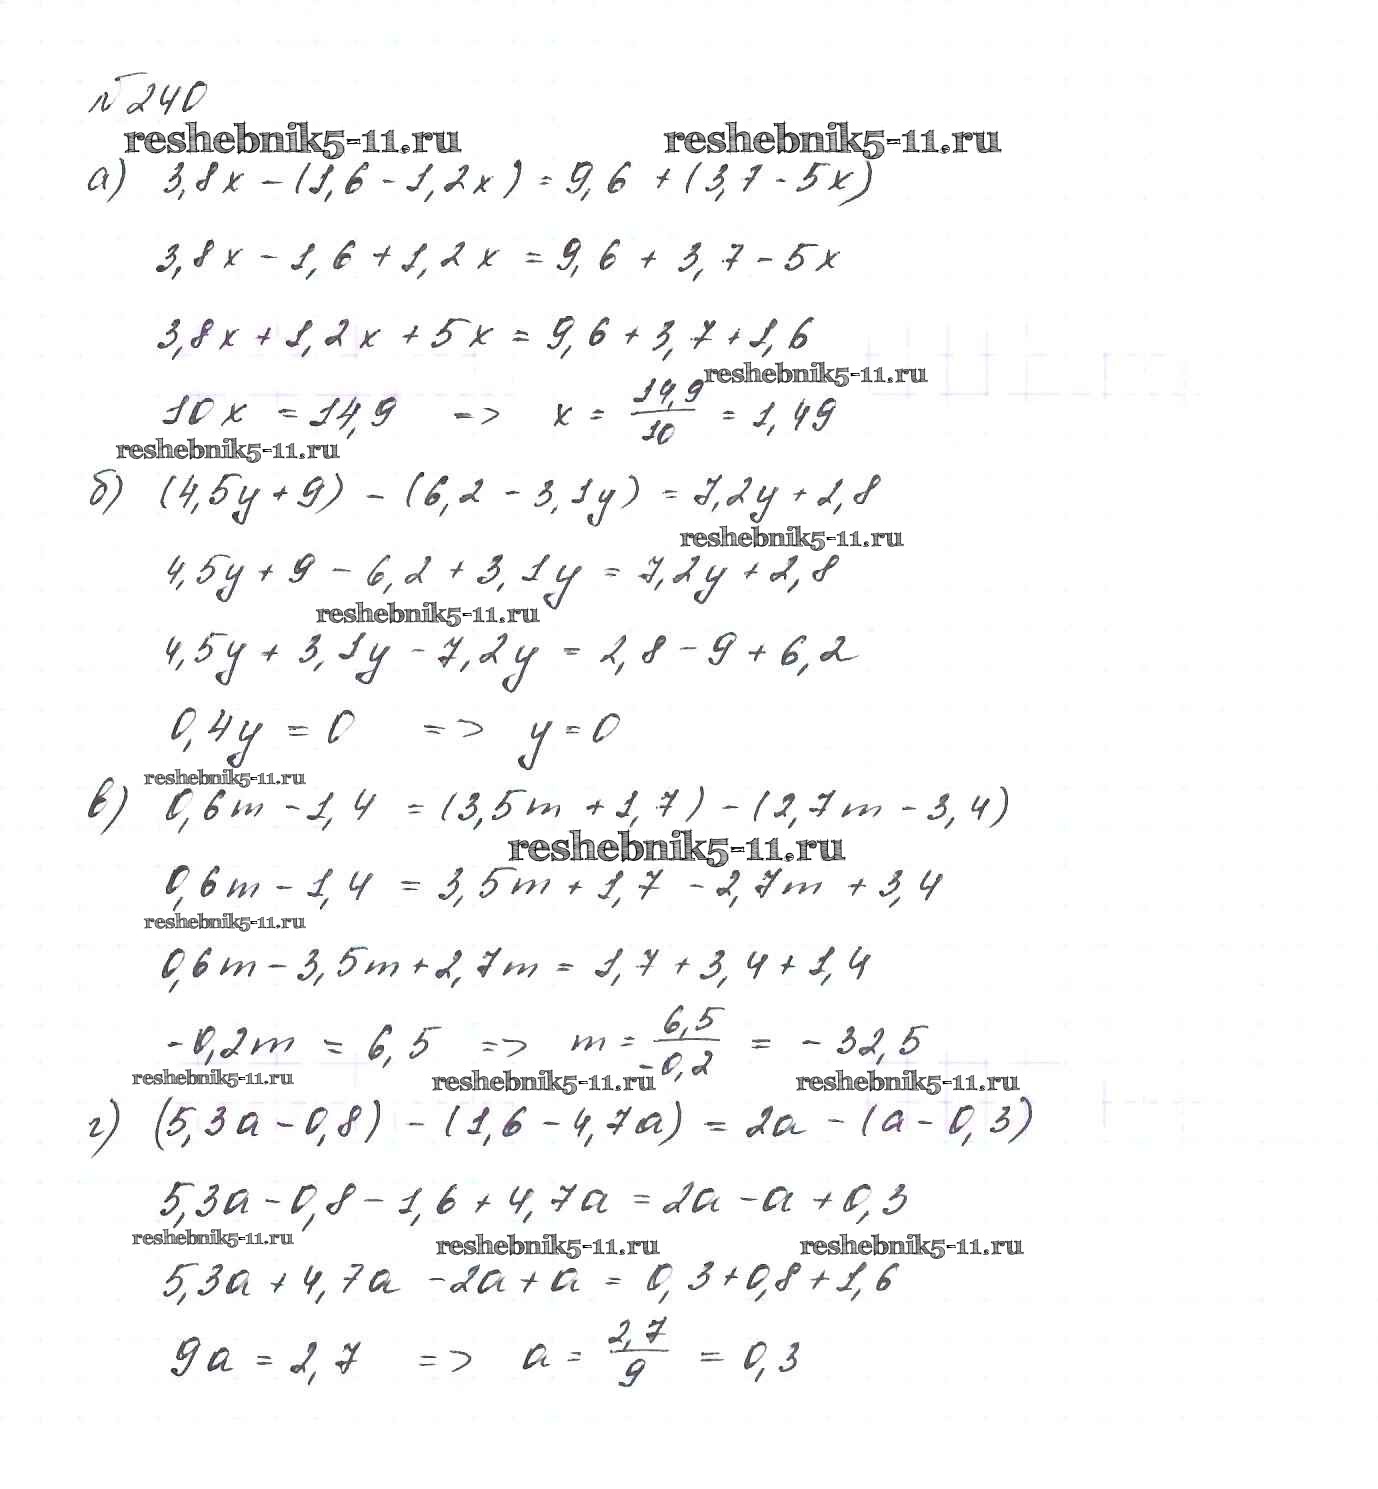 № 240
reshebnik5-11.ru reshebnik5-11.ru
а) 3,8x - (1,6 - 1,2x) = 9,6 + (3,7 - 5x)
3,8x - 1,6 + 1,2x = 9,6 + 3,7 - 5x
3,8x + 1,2x + 5x = 9,6 + 3,7 + 1,6
reshebnik5-11.ru
10x = 14,9 => x = 14,9/10 = 1,49
reshebnik5-11.ru
б) (4,5y + 9) - (6,2 - 3,1y) = 7,2y + 2,8
reshebnik5-11.ru
4,5y + 9 - 6,2 + 3,1y = 7,2y + 2,8
reshebnik5-11.ru
4,5y + 3,1y - 7,2y = 2,8 - 9 + 6,2
0,4y = 0 => y = 0
reshebnik5-11.ru
в) 0,6m - 1,4 = (3,5m + 1,7) - (2,7m - 3,4)
reshebnik5-11.ru
0,6m - 1,4 = 3,5m + 1,7 - 2,7m + 3,4
reshebnik5-11.ru
0,6m - 3,5m + 2,7m = 1,7 + 3,4 + 1,4
-0,2m = 6,5 => m = 6,5/-0,2 = -32,5
reshebnik5-11.ru reshebnik5-11.ru reshebnik5-11.ru
г) (5,3a - 0,8) - (1,6 - 4,7a) = 2a - (a - 0,3)
5,3a - 0,8 - 1,6 + 4,7a = 2a - a + 0,3
reshebnik5-11.ru reshebnik5-11.ru reshebnik5-11.ru
5,3a + 4,7a - 2a + a = 0,3 + 0,8 + 1,6
9a = 2,7 => a = 2,7/9 = 0,3